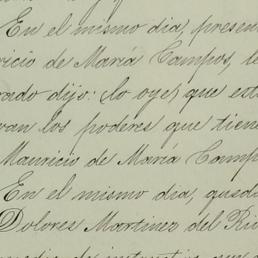 En el mismo dia, presen
ricio de María Campos, le
rado dijo: lo oye, que est
van los poderes que tien
Mauricio de María Camp
En el mismo dia, qued
Dolores Martinez del Rio